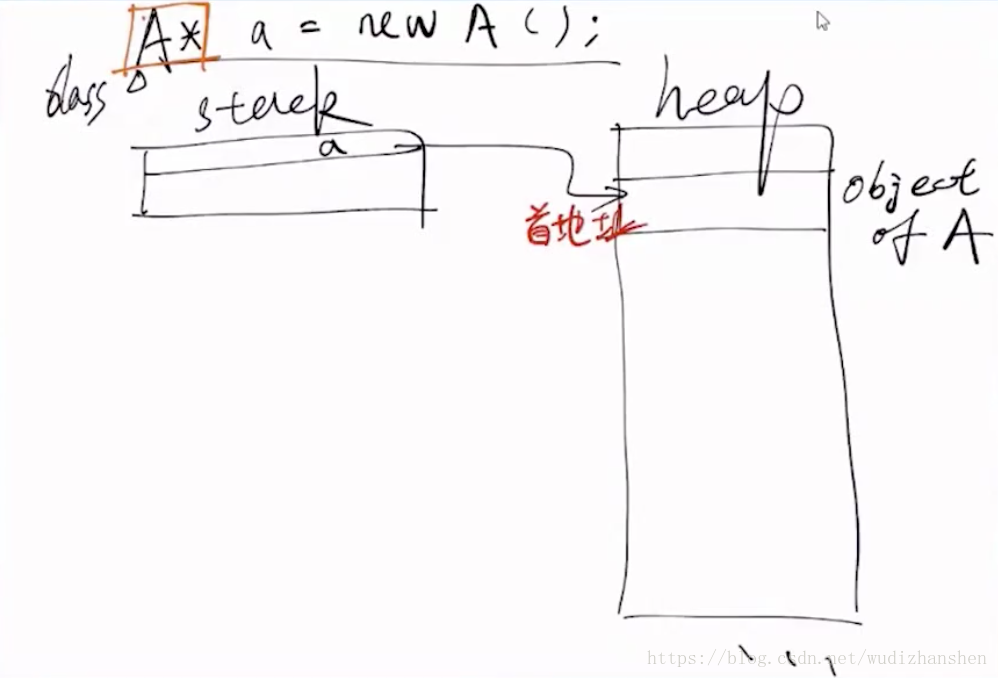 A* a = new A();
class
stack
heap
a
object
of A
首地址
https://blog.csdn.net/wudizhanshen